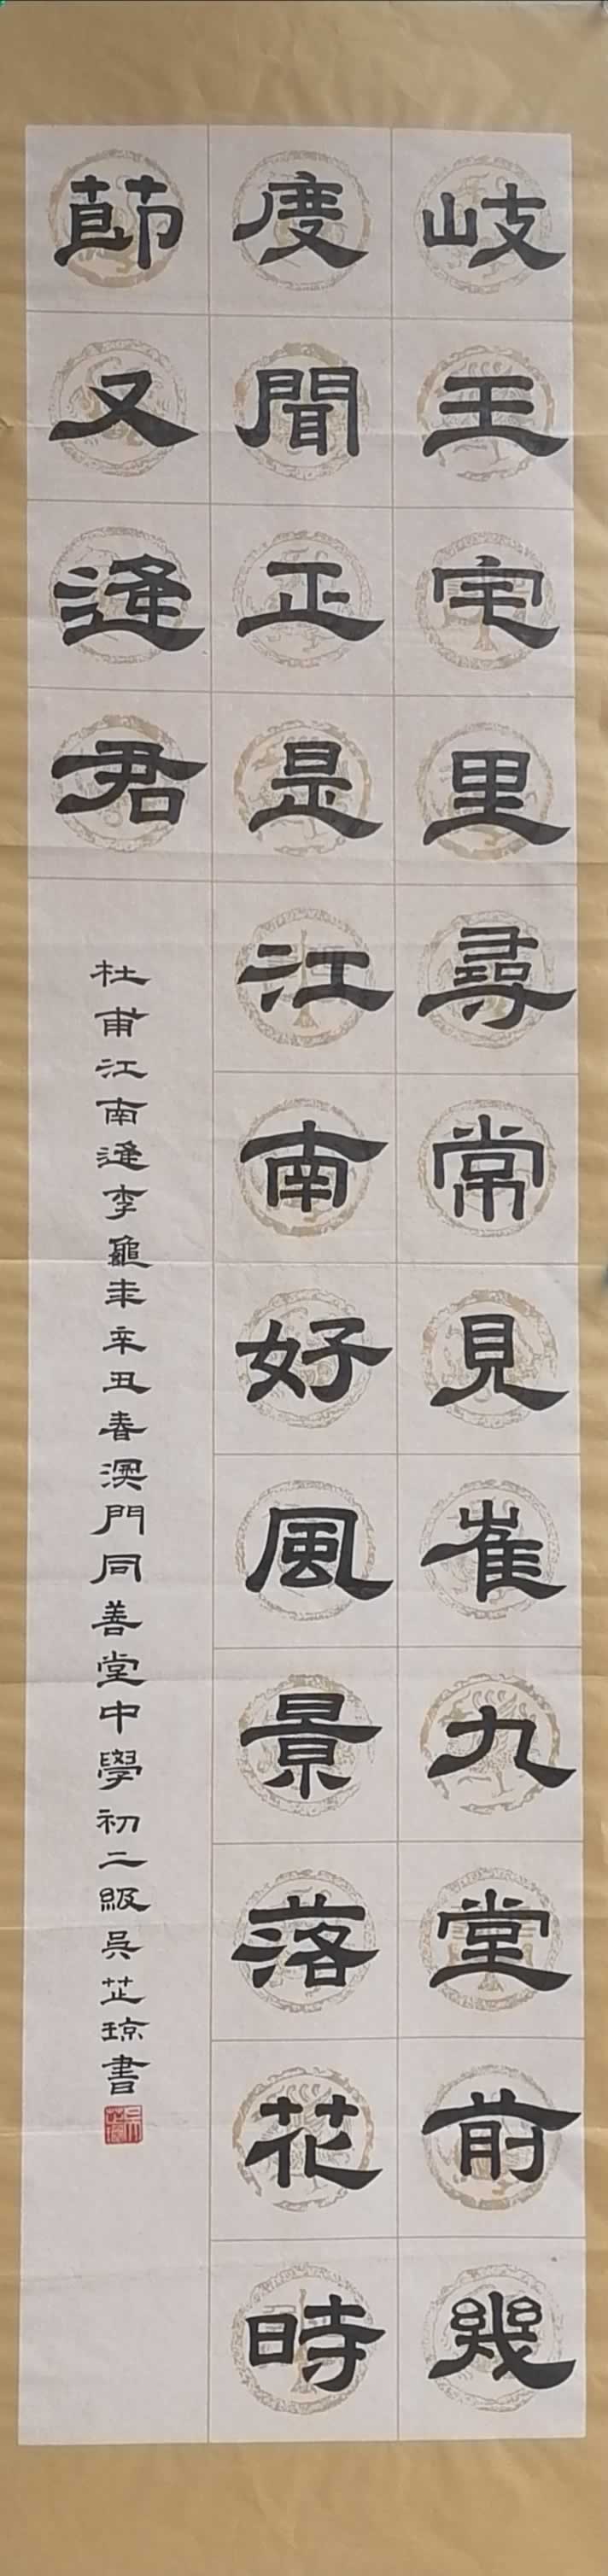 岐王宅里尋常見崔九堂前幾
度聞正是江南好風景落花時
節又逢君
杜甫江南逢李龜年辛丑春澳門同善堂中學初二級吳芷琼書